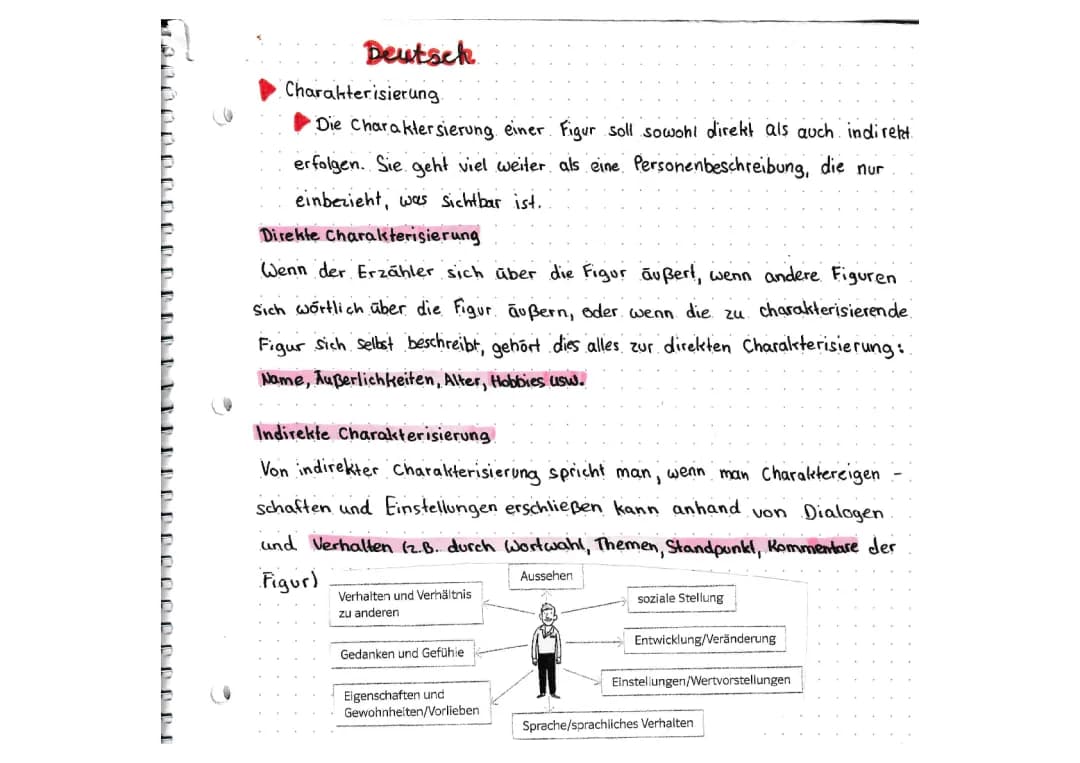 Deutsch
Charakterisierung
Die Charaktersierung einer Figur soll sowohl direkt als auch indirekt
erfolgen. Sie geht viel weiter als eine Personenbeschreibung, die nur
einbezieht, was sichtbar ist.
Direkte Charakterisierung
Wenn der Erzähler sich über die Figur äußert, wenn andere Figuren
sich wörtlich über die Figur äußern, oder wenn die zu charakterisierende
Figur sich selbst beschreibt, gehört dies alles zur direkten Charakterisierung:
Name, Äußerlichkeiten, Alter, Hobbies usw.
Indirekte Charakterisierung
Von indirekter Charakterisierung spricht man, wenn man Charaktereigen -
schaften und Einstellungen erschließen kann anhand von Dialogen
und Verhalten (z.B. durch Wortwahl, Themen, Standpunkt, Kommentare der
Figur)
Aussehen
Verhalten und Verhältnis
zu anderen
soziale Stellung
Gedanken und Gefühle
Entwicklung/Veränderung
Einstellungen/Wertvorstellungen
Eigenschaften und
Gewohnheiten/Vorlieben
Sprache/sprachliches Verhalten